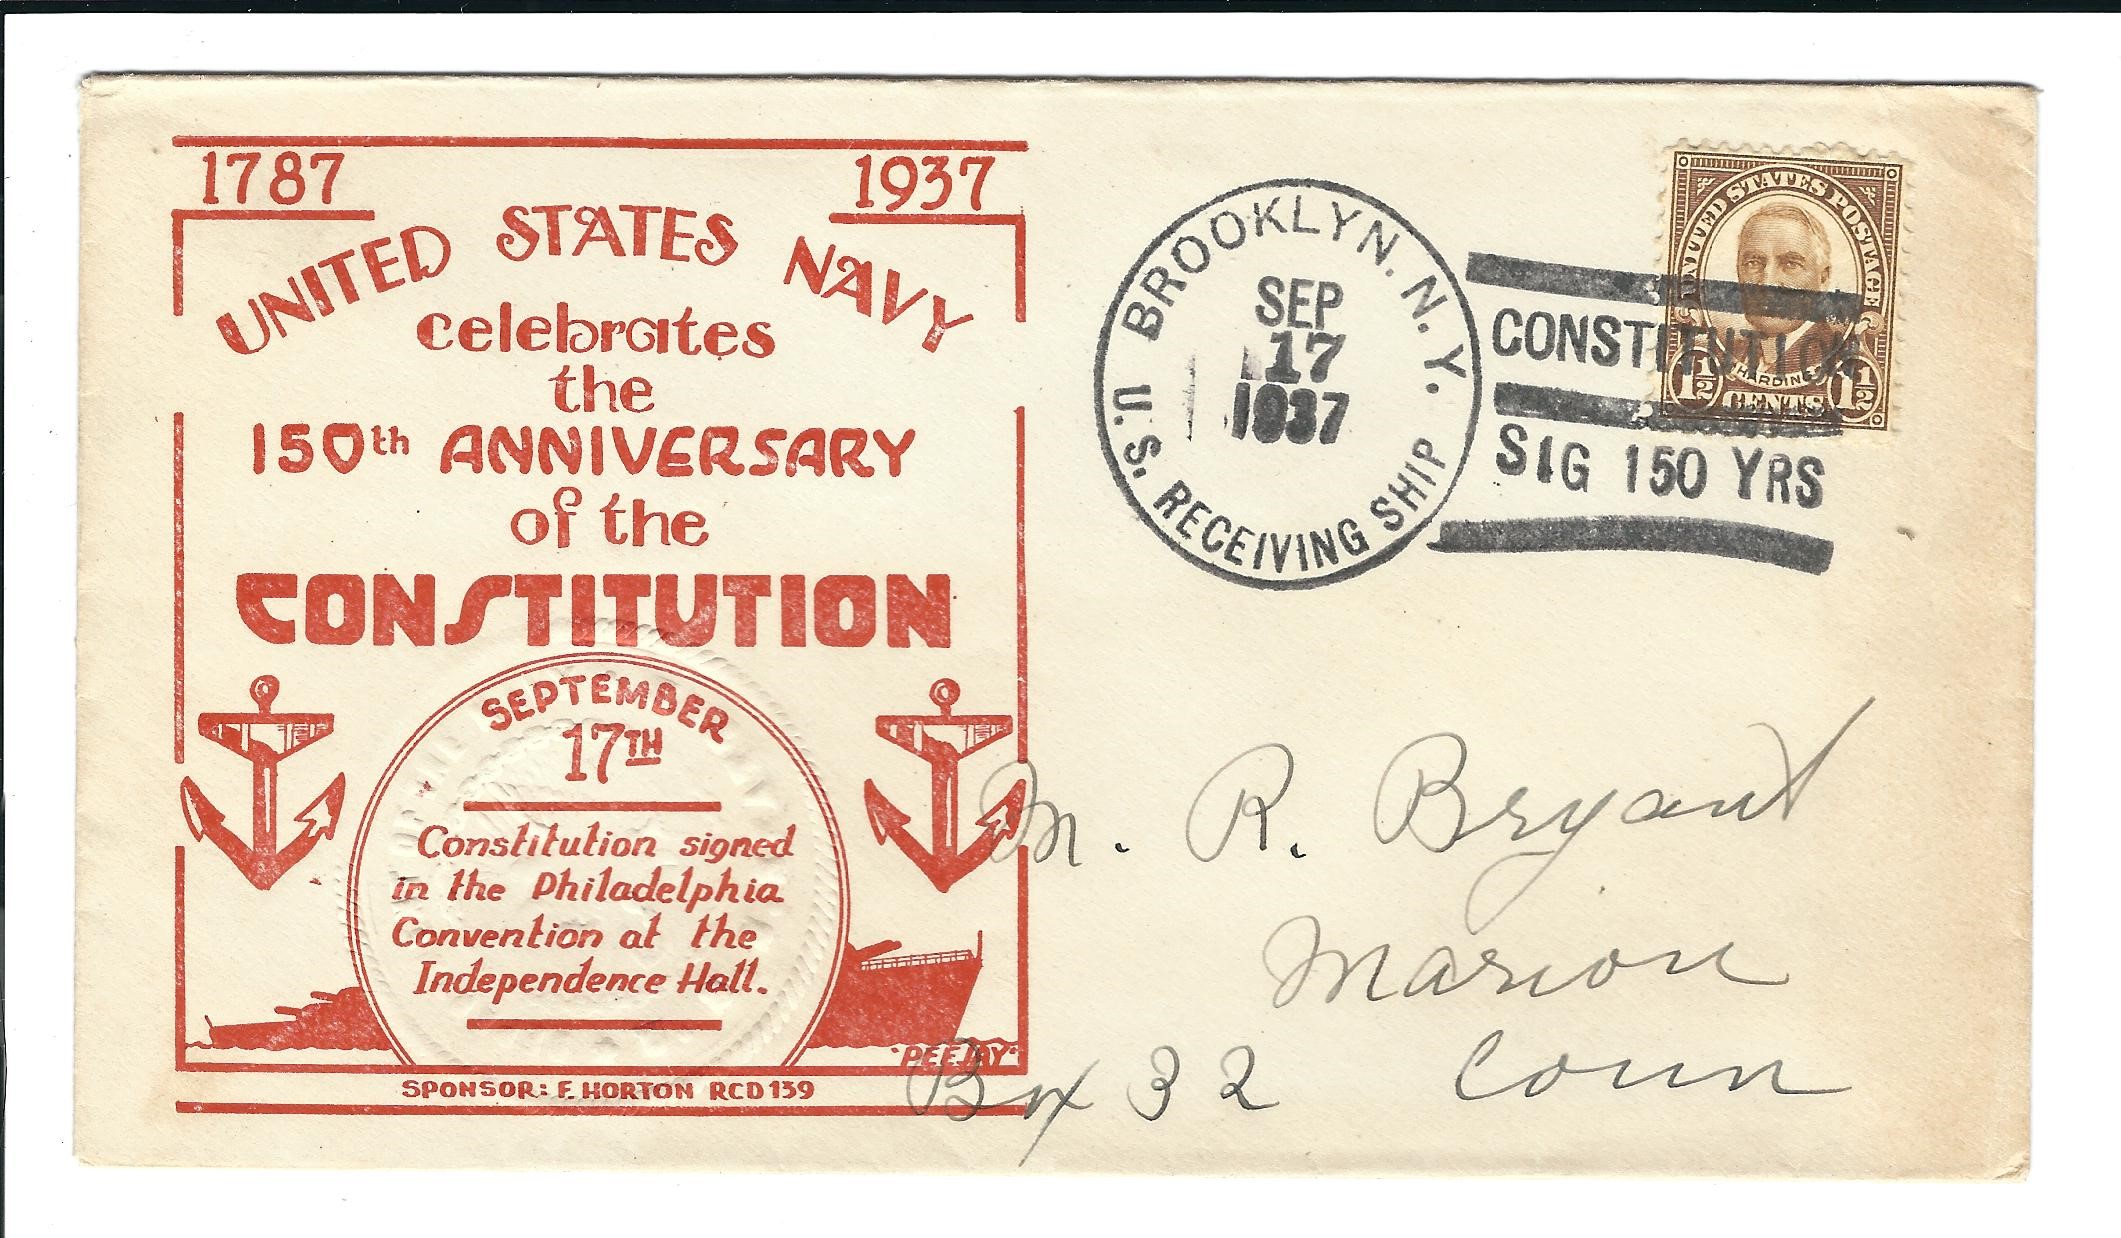 1787 1937
UNITED STATES NAVY
celebrates
the
150th ANNIVERSARY
of the
CONSTITUTION
SEPTEMBER
17TH
Constitution signed
in the Philadelphia
Convention at the
Independence Hall.
"PEEJAY"
SPONSOR: F. HORTON RCD 139
BROOKLYN. N. Y.
SEP
17
1937
U. S. RECEIVING SHIP
CONSTITUTION
SIG 150 YRS
UNITED STATES POSTAGE
HARDING
1½ CENTS 1½
M. R. Bryant
Marion
Box 32 Conn